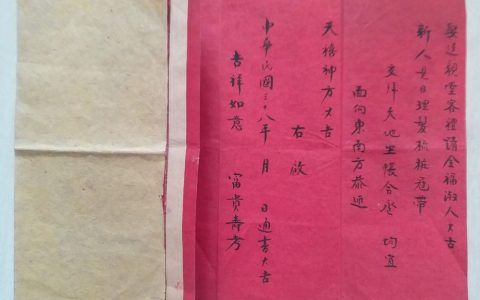 娶送親堂客礼請全福淑人大吉
新人是日理髮梳粧冠帶
交拜天地坐帳合卺 均宜
面向東南方恭迎
天禧神方大吉
右啟
中華民國三十八年 月 日通書大吉
吉祥如意 富貴壽考